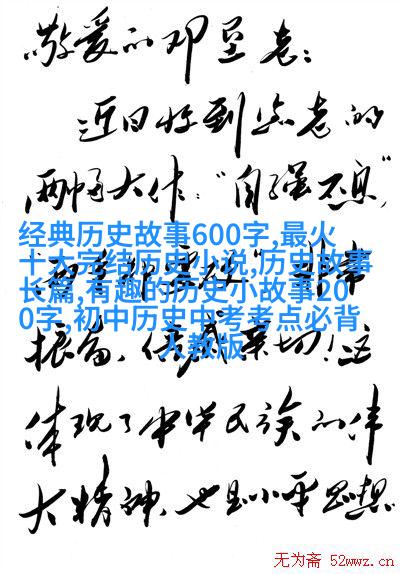 敬爱的邓垦老：
近日收到您老的
两幅大作：“自强不息”
经典历史故事600字,最火
十大完结历史小说,历史故事
非常
长篇,有趣的历史小故事20
0字,初中历史中考考点必背
人教版
振奋、倍感亲切！这
体现了中华民族的伟
大精神,也是小平思想
无为斋 52wwz.cn